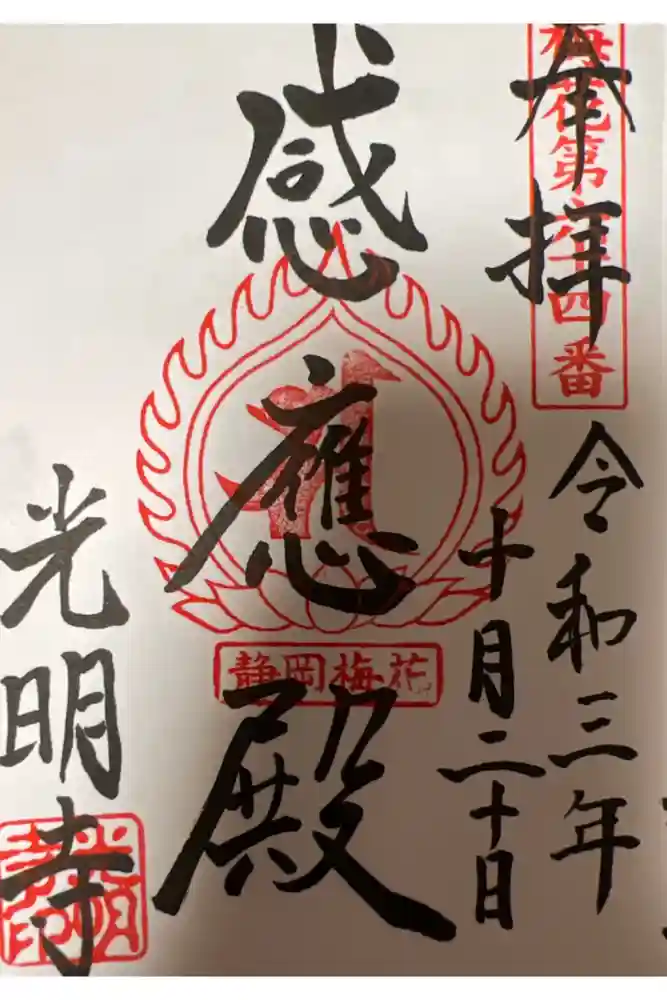 奉拝
梅花第六十四番
令和三年
十月二十日
感應殿
静岡梅花
光明寺